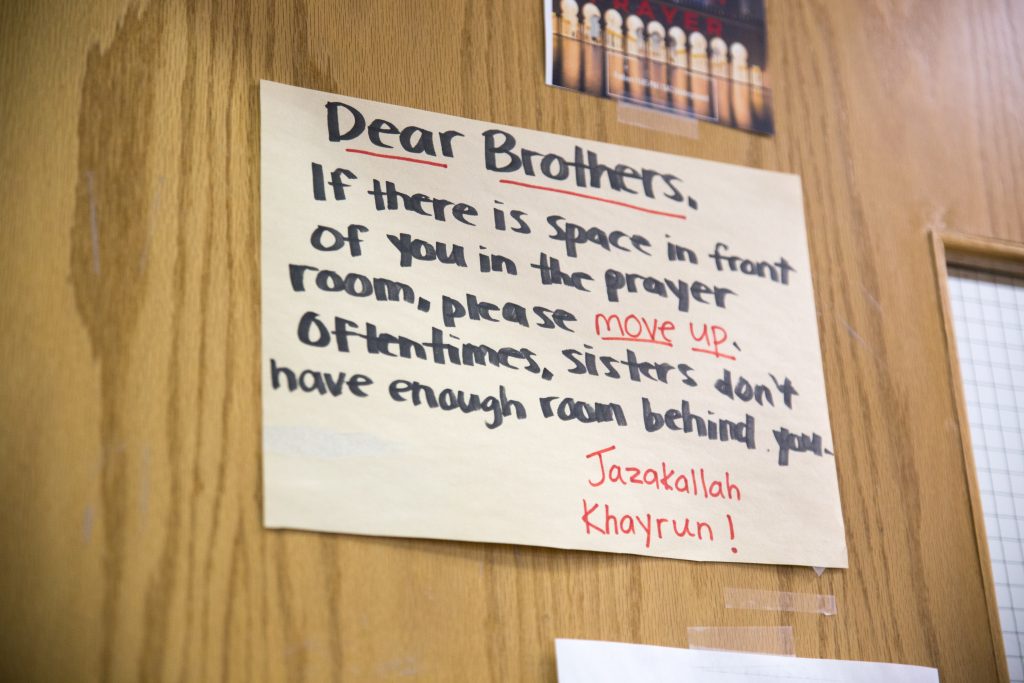 PRAYER
Dear Brothers,
If there is space in front
of you in the prayer
room, please move up.
Oftentimes, sisters don't
have enough room behind you.
Jazakallah
Khayrun!